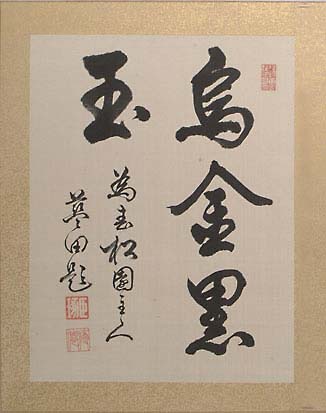 烏金黒
玉
為春松園主人
田題